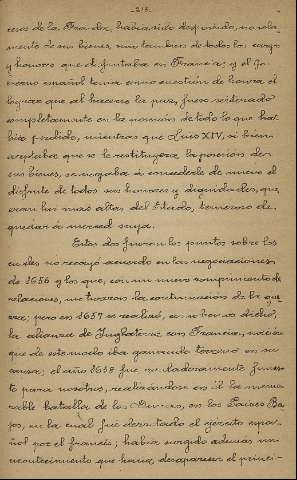 -213-
ceros de la Fronda, había sido desposeido, no sola-
mente de sus bienes, sino tambien de todos los cargos
y honores que disfrutaba en Francia; y el Go-
bierno español tenía como cuestión de honra el
lograr que al hacerse la paz, fuese reintegrado
completamente en la posesión de todo lo que ha-
bía perdido, mientras que Luis XIV, si bien
aceptaba que se le restituyera la posesión de
sus bienes, se negaba a concederle de nuevo el
disfrute de todos sus honores y dignidades, que
eran las más altas del Estado, temeroso de
quedar a merced suya.
Estos dos fueron los puntos sobre los
cuales no recayó acuerdo en las negociaciones
de 1656 y los que, con un nuevo rompimiento de
relaciones, motivaron la continuación de la gue-
rra; pero en 1657 se realizó, como hemos dicho,
la alianza de Inglaterra con Francia, nación
que de este modo iba ganando terreno en su
causa; el año 1658 fué verdaderamente funes-
to para nosotros, realizándose en él la memo-
rable batalla de las Dunas, en los Paises Ba-
jos, en la cual fué derrotado el ejército espa-
ñol por el francés; había surgido además un
acontecimiento que hacía desaparecer el princi-